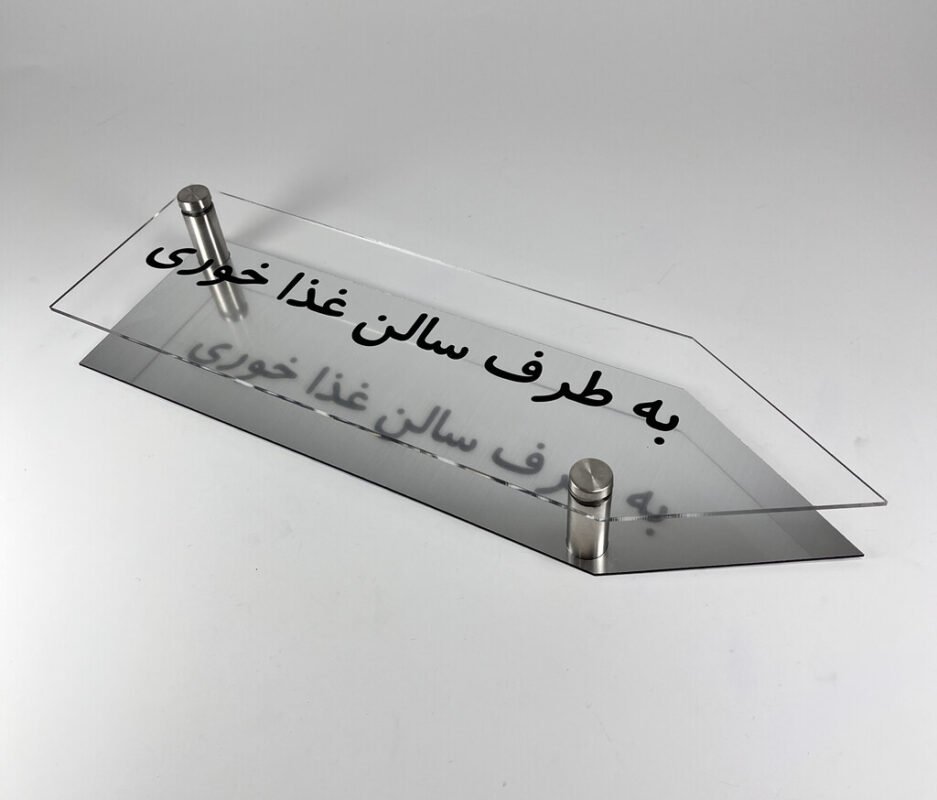 به طرف سالن غذا خوری